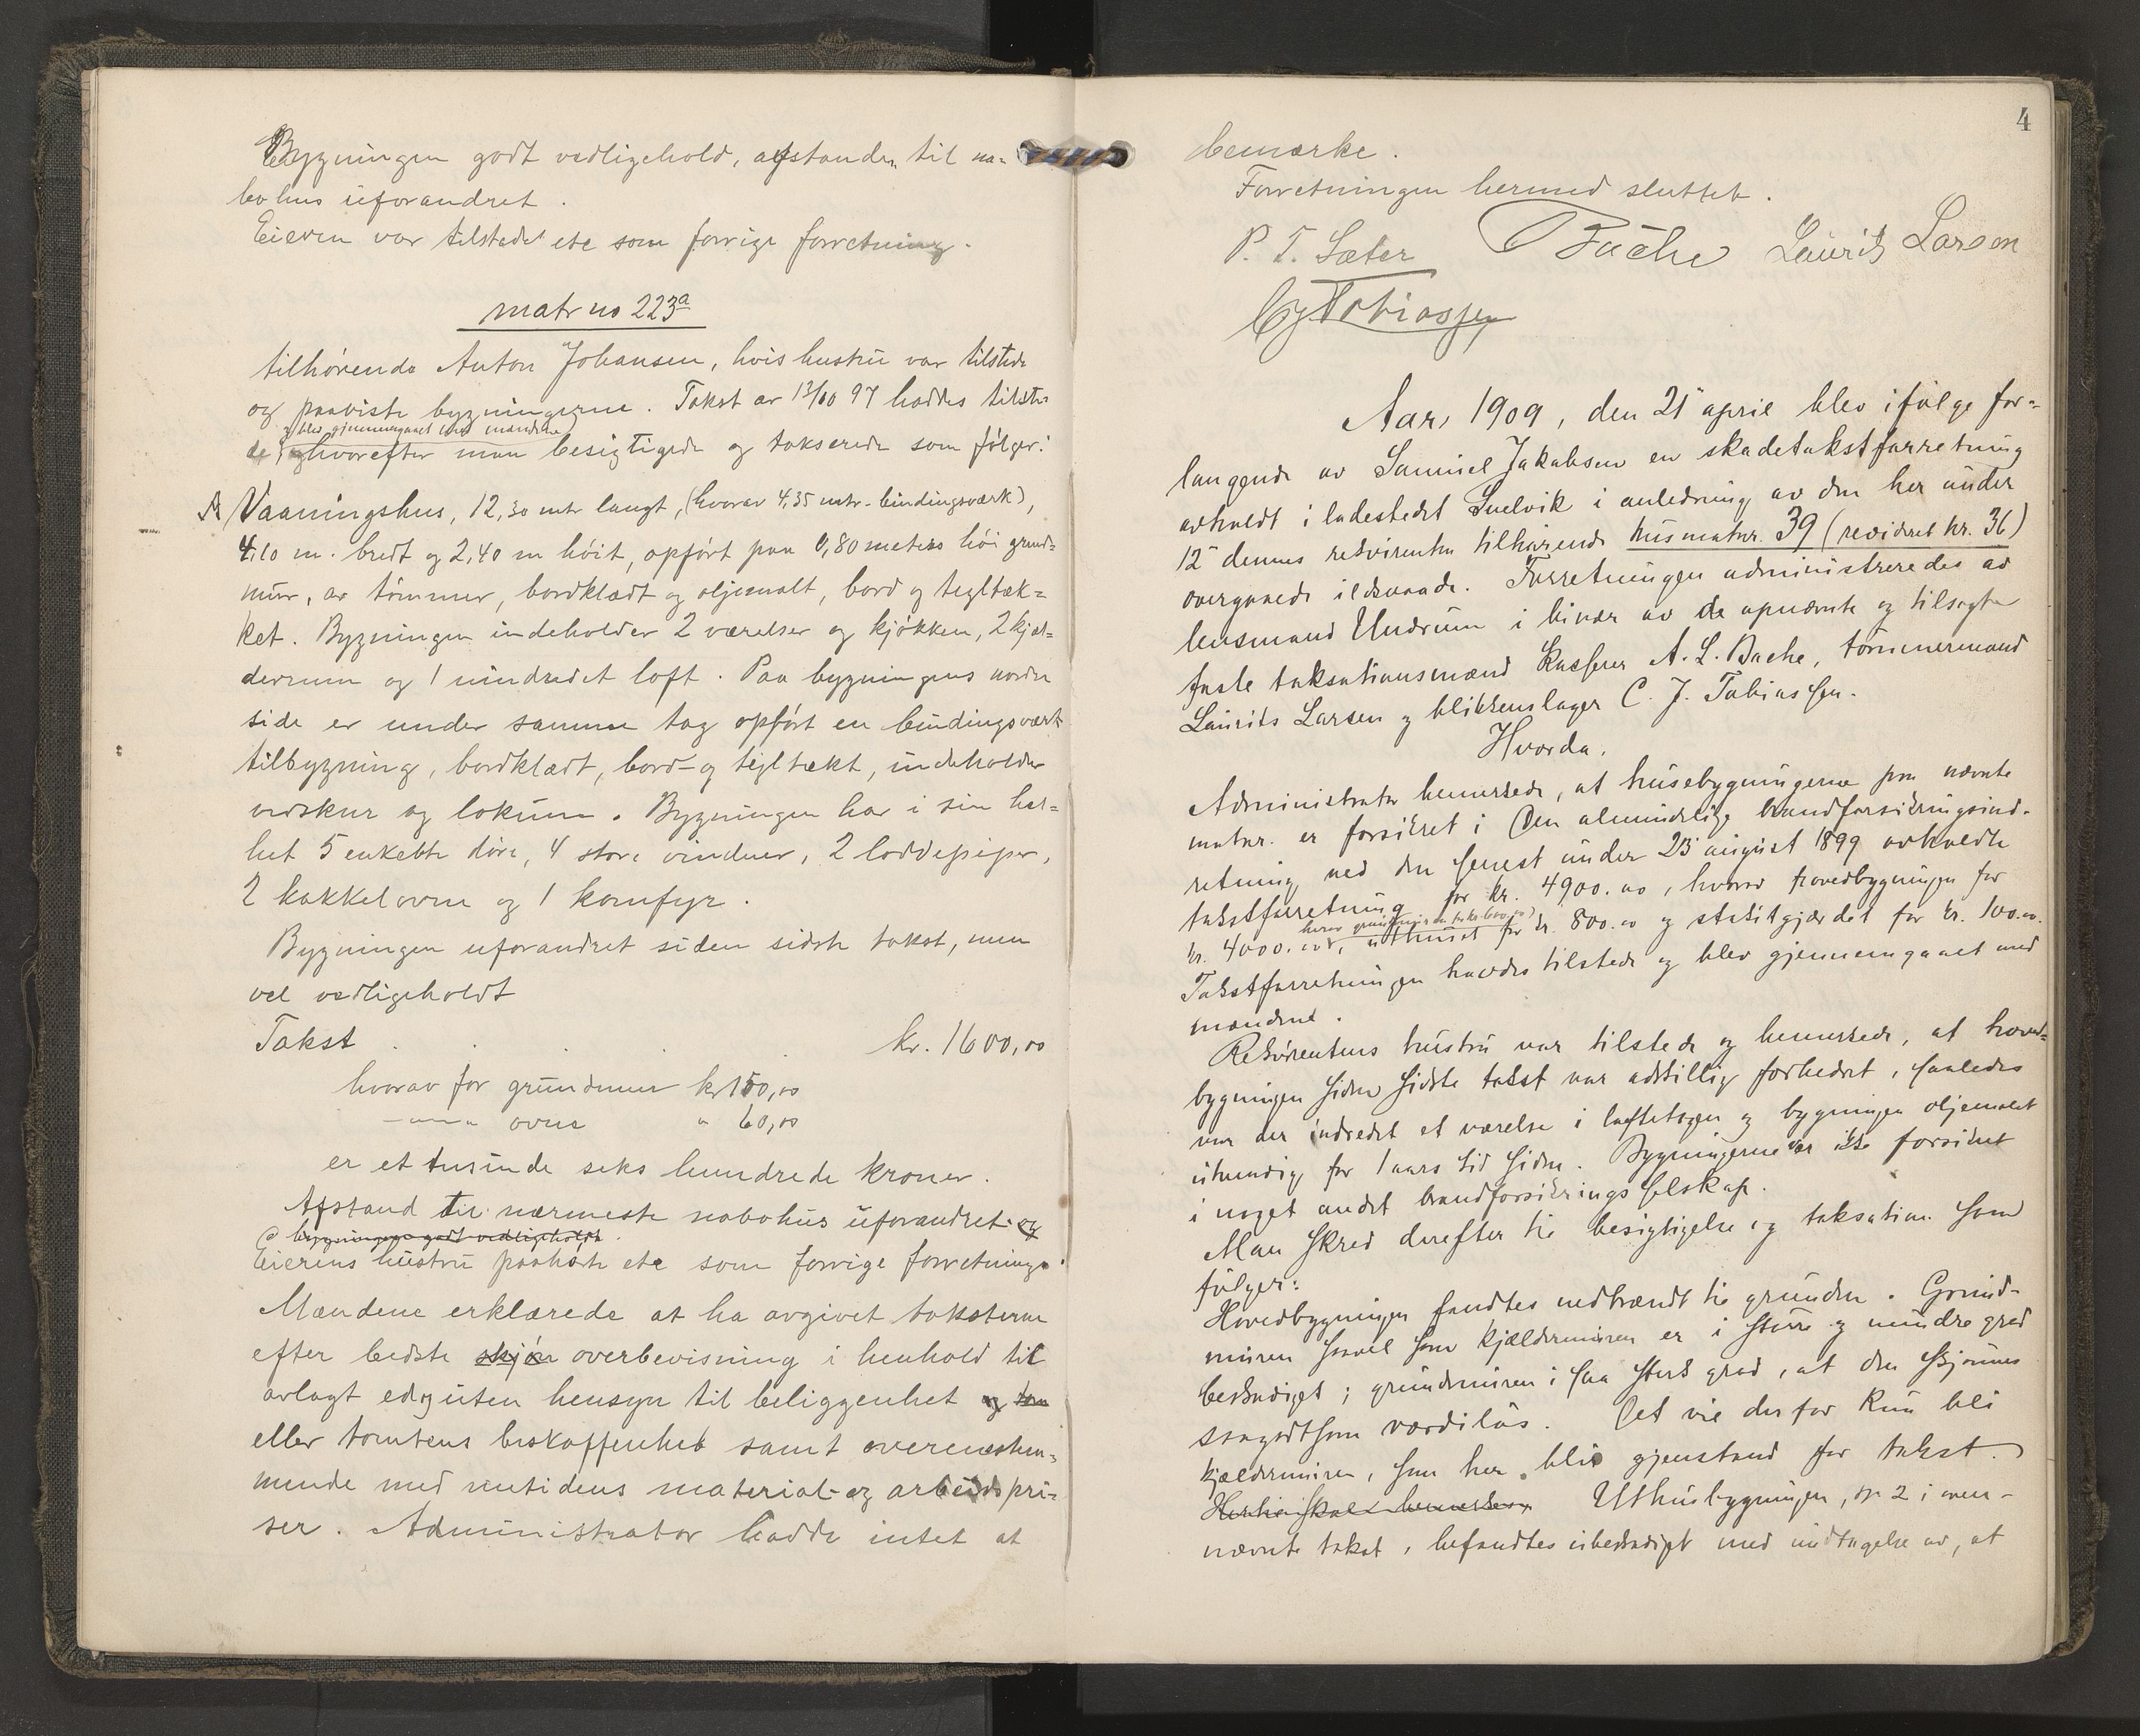 Bygningen godt vedligehold, afstanden til na-
bohus uforandret.
Eieren var tilstede etc som forrige forretning.
matr no 223a
tilhørende Anton Johansen, hvis hustru var tilstede
og paaviste bygningerne. Takst av 13/10 97 haddes tilste-
og blev gjennemgaaet med mændene
de, hvorefter man besigtigede og takserede som følger:
Vaaningshus, 12,30 mtr langt, (hvorav 4,35 mtr. bindingsværk),
4,10 m. bredt og 2,40 m høit, opført paa 0,80 meters høi grund-
mur, av tømmer, bordklædt og oljemalt, bord og tegltæk-
ket. Bygningen indeholder 2 værelser og kjøkken, 2 kjæl-
derrum og 1 uindredet loft. Paa bygningens nordre
side er under samme tag opført en bindingsværk
tilbygning, bordklædt, bord- og tegltækt, indeholder
vedskur og lokum. Bygningen har i sin hel-
het 5 enkelte døre, 4 store vinduer, 2 loddepiper,
2 kakkelovne og 1 komfyr.
Bygningen uforandret siden sidste takst, men
vel vedligeholdt
Takst . . . . kr. 1600,00
hvorav for grundmur kr 150,00
— " — ovne " 60,00
er et tusinde seks hundrede kroner.
Afstand til nærmeste nabohus uforandret og
bygningen godt vedligeholdt.
Eierens hustru paahørte etc som forrige forretning.
Mændene erklærede at ha avgivet taksterne
efter bedste skjøn overbevisning i henhold til
avlagt ed og uten hensyn til beliggenhet og tom
eller tomtens beskaffenhet samt overensstem-
mende med nutidens material- og arbeidspri-
ser. Administrator hadde intet at
4
bemærke.
Forretningen hermed sluttet.
P. T. Sæter Bache Laurits Larsen
C J Tobiassen
Aar 1909, den 21 april blev ifølge for-
langende av Samuel Jakobsen en skadetakstforretning
avholdt i ladestedet Svelvik i anledning av den her under
12 dennes rekvirenten tilhørende hus matnr. 39 (revideret nr. 36)
overgaaede ildsvaade. Forretningen administreredes av
lensmand Undrum i bivær av de opnævnte og tilsagte
faste taksationsmænd Kasserer A. L. Bache, tømmermand
Laurits Larsen og blikkenslager C. J. Tobiassen.
Hvorda.
Administrator bemerkede, at husebygningerne paa nævnte
matnr. er forsikret i Den almindelige brandforsikringsind-
retning ved den senest under 23 august 1899 avholdte
takstforretning for kr. 4900.00, hvorav hovedbygningen for
herav grundmur m. kr. 600.00)
kr. 4000.00, uthuset for kr. 800.00 og stakitgjærdet for kr. 100.00.
Takstforretningen haddes tilstede og blev gjennemgaaet med
mændene.
Rekvirentens hustru var tilstede og bemerkede, at hoved-
bygningen siden sidste takst var adskillig forbedret, saaledes
var der indredet et værelse i loftetagen og bygningen oljemalet
utvendig for 1 aars tid siden. Bygningerne var ikke forsikret
i noget andet brandforsikringsselskap.
Man skred derefter til besigtigelse og taksation som
følger:
Hovedbygningen fandtes nedbrændt til grunden. Grund-
muren saavel som kjældermuren er i større og mindre grad
beskadiget; grundmuren i saa sterk grad, at den skjønnes
saagodtsom værdiløs. Det vil derfor kun bli
kjældermuren, som her blir gjenstand for takst.
Hertil skal bemerkes Uthusbygningen, nr 2 i oven-
nævnte takst, befandtes ubeskadiget med undtagelse av, at